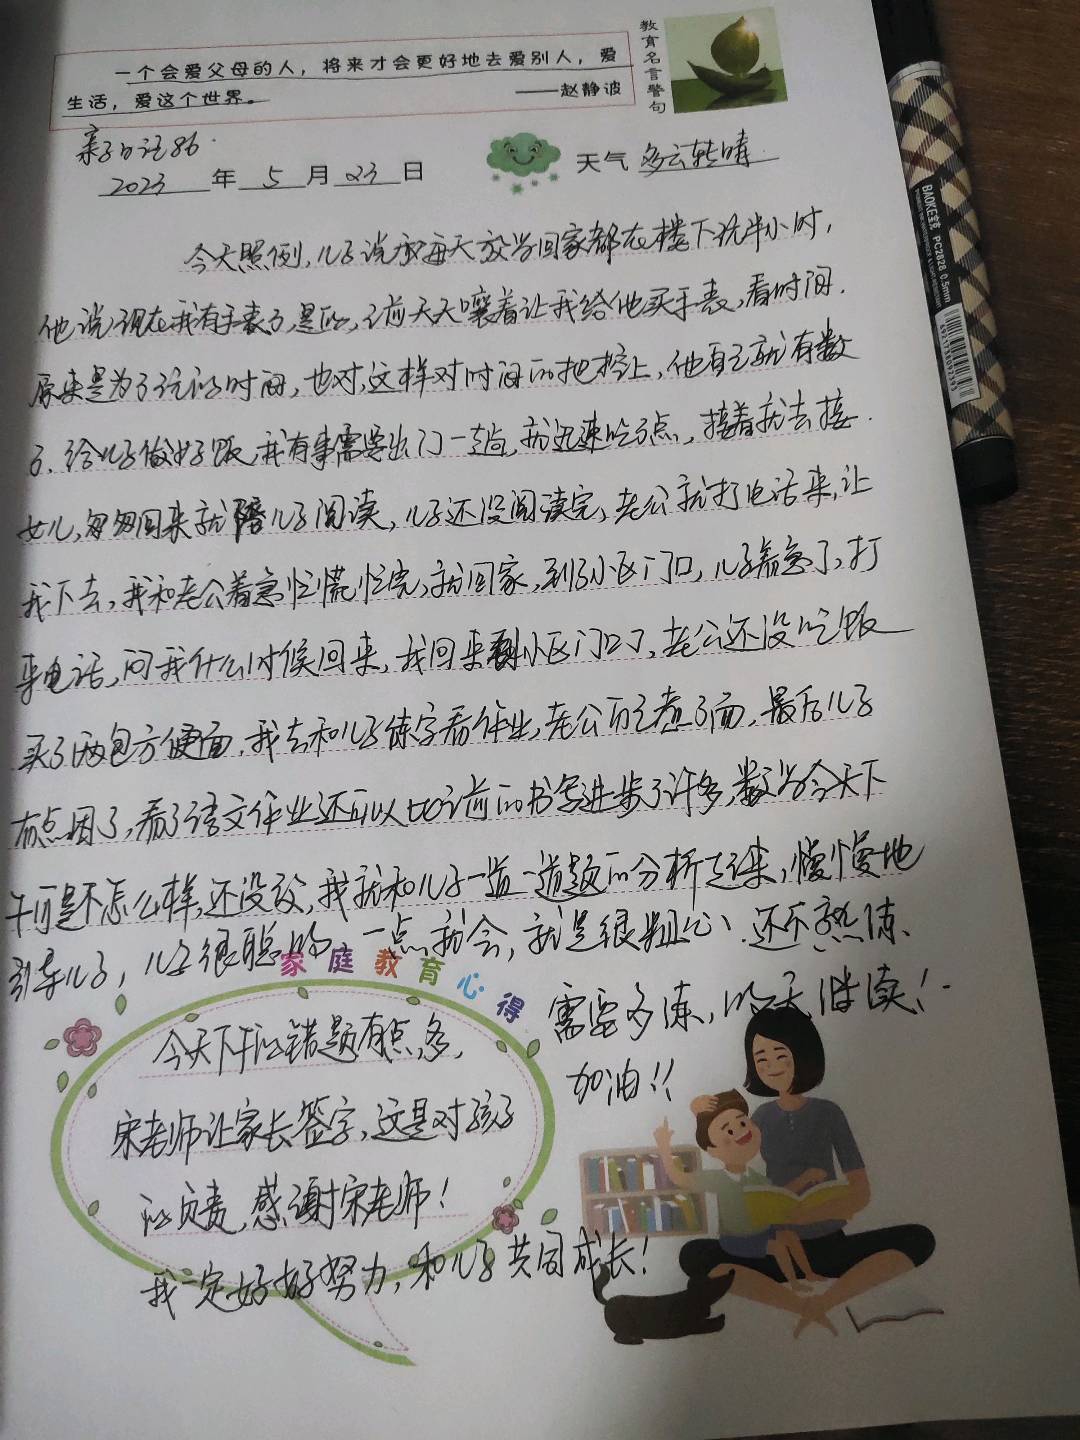 教育名言警句
一个会爱父母的人，将来才会更好地去爱别人，爱
生活，爱这个世界。 ——赵静波
亲子日记86.
2023年5月23日 天气 多云转晴
今天照例，儿子说每天放学回家都在楼下玩半小时，
他说现在我有手表了，是的，之前天天嚷着让我给他买手表，看时间.
原来是为了玩的时间，也对，这样对时间的把控上，他自己就有数
了.给儿子做好饭，我有事需要出门一趟，就迅速吃了点，接着就去接.
女儿，匆匆回来就陪儿子阅读，儿子还没阅读完，老公就打电话来，让
我下去，我和老公着急忙慌忙完，就回家，到了小区门口，儿子着急了，打
来电话，问我什么时候回来，我回来到小区门口了，老公还没吃饭
买了两包方便面.我去和儿子练字看作业，老公自己煮了面，最后儿子
有点困了，看了语文作业还可以比之前的书写进步了许多，数学今天下
午可是不怎么样，还没改，我就和儿子一道一道题的分析起来，慢慢地
引导儿子，儿子很聪明，一点就会，就是很粗心，还不熟练、
需要多练，继续！
加油！！
家庭教育心得
今天下午的错题有点多，
宋老师让家长签字，这是对孩子
的负责，感谢宋老师！
我一定好好努力，和儿子共同成长！
BAOKE宝克 PC2828 0.5mm